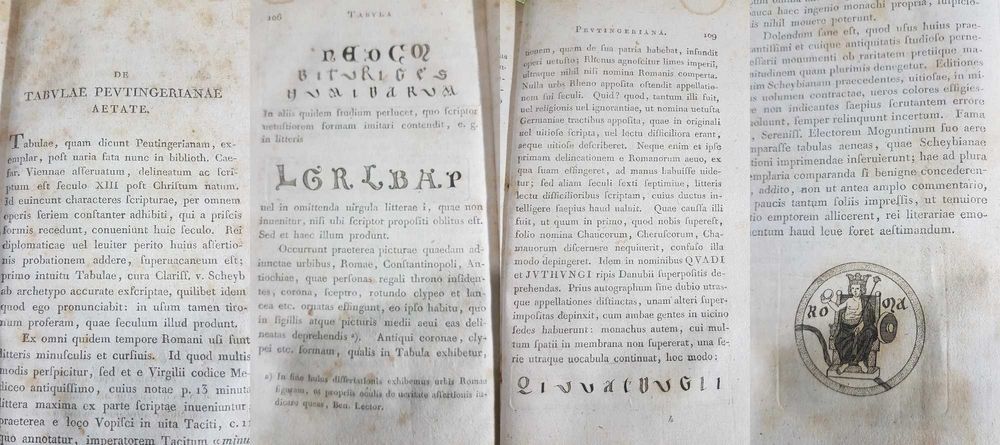 DE
TABVLAE PEVTINGERIANAE
AETATE.
Tabulae, quam dicunt Peutingerianam, ex-
emplar, poſt uaria fata nunc in biblioth. Cae-
ſar. Viennae aſſeruatum, delineatum ac ſcri-
ptum eſt ſeculo XIII poſt Chriſtum natum.
Id euincunt characteres ſcripturae, per omnem
operis ſeriem conſtanter adhibiti, qui a priſcis
formis recedunt, conueniunt huic ſeculo. Rei
diplomaticae uel leuiter perito huius aſſertio-
nis probationem addere, ſuperuacaneum eſt;
primo intuitu Tabulae, cura Clariſſ. v. Scheyb
ab archetypo accurate exſcriptae, quilibet idem
quod ego pronunciabit: in uſum tamen tiro-
num proferam, quae ſeculum illud produnt.
Ex omni quidem tempore Romani uſi ſunt
litteris minuſculis et curſiuis. Id quod multis
modis perſpicitur, ſed et e Virgilii codice Me-
diceo antiquiſſimo, cuius notae p. 13 minuta
littera maxima ex parte ſcriptae inueniuntur;
praeterea e loco Vopiſci in uita Taciti, c. 11
quo annotatur, imperatorem Tacitum « minu
106 TABVLA
BITVRIGES
In aliis quidem ſtudium perlucet, quo ſcriptor
uetuſtiorem formam imitari contendit, e. g.
in litteris
L G R L B H P
uel in omittenda uirgula litterae i, quae non
inuenitur, niſi ubi ſcriptor propoſiti oblitus eſt.
Sed et haec illum produnt.
Occurrunt praeterea picturae quaedam ad-
iunctae urbibus, Romae, Conſtantinopoli, An-
tiochiae, quae perſonas regali throno inſiden-
tes, corona, ſceptro, rotundo clypeo et lan-
cea etc. ornatas effingunt, eo ipſo habitu, quo
in ſigillis atque picturis medii aeui eas deli-
neatas deprehendis ª). Antiqui coronae, cly-
pei etc. formam, qualis in Tabula exhibetur,
a) In fine huius diſſertationis exhibemus urbis Romae
figuram, ut propriis oculis de ueritate aſſertionis iu-
dicare queas, Ben. Lector.
PEVTINGERIANA. 109
tionem, quam de ſua patria habebat, infundit
operi uetuſto; Rhenus agnoſcitur limes imperii,
ultraque nihil niſi nomina Romanis comperta.
Nulla urbs Rheno appoſita oſtendit appellatio-
nem ſui ſeculi. Quid? quod, tantum illi fuit,
uel religionis uel ignorantiae, ut nomina uetuſta
Germaniae tractibus appoſita, quae in originali
uel uitioſe ſcripta, uel lectu difficiliora erant,
aeque uitioſe deſcriberet. Neque enim et ipſe
primam delineationem e Romanorum aeuo, ex
qua ſuam effingeret, ad manus habuiſſe uide-
tur; ſed aliam ſeculi ſexti ſeptimiue, litteris
lectu difficilioribus ſcriptam, cuius ductus in-
telligere ſaepius haud ualuit. Quae cauſſa illi
fuit, ut quum in primo, quod nobis ſupereſt,
folio nomina Chaucorum, Cheruſcorum, Cha-
manorum diſcernere nequiuerit, confuſo illa
modo depingeret. Idem in nominibus QVADI
et JVTHVNGI ripis Danubii ſuperpoſitis de-
prehendas. Prius autographum ſine dubio utras-
que appellationes diſtinctas, unam alteri ſuper-
impoſitas depinxit, cum ambae gentes in uicino
ſedes habuerunt: monachus autem, cui mul-
tum ſpatii in membrana non ſupererat, una ſe-
rie utraque uocabula continuat, hoc modo:
h
pauca haec ingenio monachi propria, ſuſpicio-
nis nihil mouere poterunt.
Dolendum ſane eſt, quod uſus huius prae-
ſtantiſſimi et cuique antiquitatis ſtudioſo perne-
ceſſarii monumenti ob raritatem pretiique ma-
gnitudinem quam plurimis denegetur. Editiones
enim Scheybianam praecedentes, uitioſae, in mi-
nus uolumen contractae, ueros colores effigies-
que non indicantes ſaepius ſcrutantem errore
inuoluunt, ſemper relinquunt incertum. Fama
eſt, Sereniſſ. Electorem Moguntinum ſuo aere
comparaſſe tabulas aeneas, quae Scheybianae
editioni imprimendae inſeruierunt; hae ad plura
exemplaria comparanda ſi benigne concederen-
tur, addito, non ut antea amplo commentario,
ſed paucis tantum foliis impreſſis, ut tenuiore
pretio emptorem allicerent, rei literariae emo-
lumentum haud leue foret aeſtimandum.
ROMA